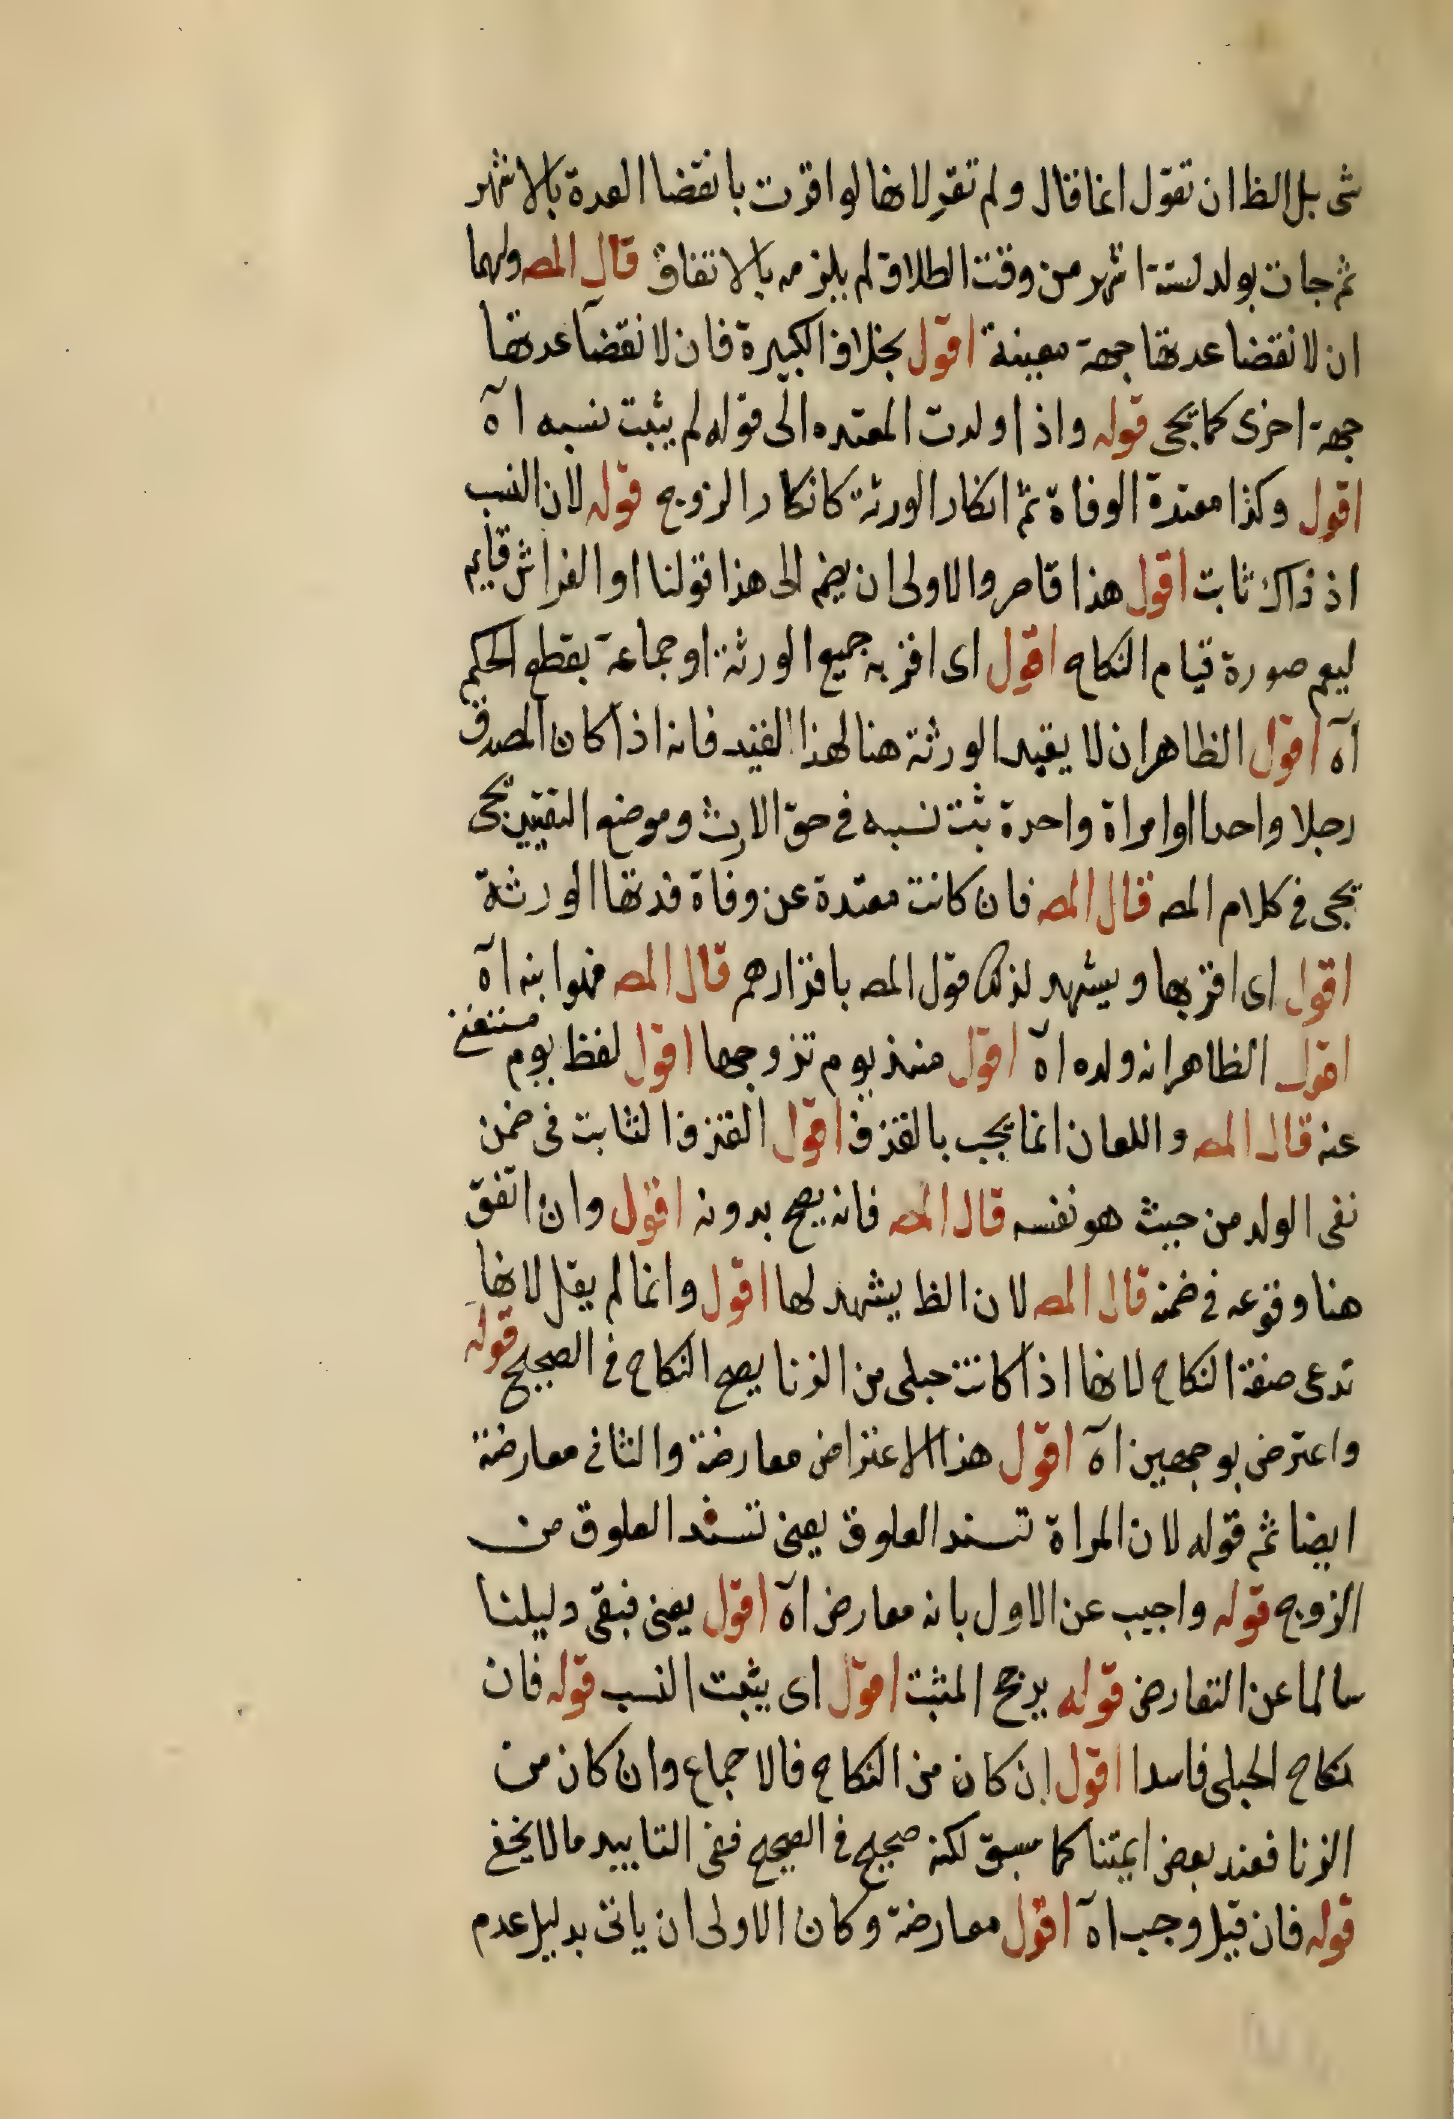 شى بل الظ ان تقول انما قال ولم تقر لانها لو اقرت بانقضا العدة بالاشهر
ثم جات بولد لستة اشهر من وقت الطلاق لم يلزمه بالاتفاق قال المصـ ولهما
ان لانقضا عدتها جهة معينة اقول بخلاف الكبيرة فان لانقضآ عدتها
جهة اخرى كما يجى قوله واذا ولدت المعتده الى قوله لم يثبت نسبه اه
اقول وكذا معتدة الوفاة ثم انكار الورثة كانكار الزوج قوله لان النسب
اذ ذاك ثابت اقول هذا قاصر والاولى ان يضم الى هذا قولنا او الفراش قايم
ليعم صورة قيام النكاح اقول اى اقر به جميع الورثة او جماعة يقطع الحكم
آه اقول الظاهر ان لا يقيد الورثة هنا لهذا القيد فانه اذا كان المصدق
رجلا واحدا او امراة واحدة يثبت نسبه فى حق الارث وموضع التقييد يجى
يجى فى كلام المصـ قال المصـ فان كانت معتدة عن وفاة فدقها الورثة
اقول اى اقر بها ويشهد لذلك قول المصـ باقرارهم قال المصـ فهو ابنه آه
اقول الظاهر انه ولده آه اقول منذ يوم تزوجها اقول لفظ يوم مستغنى
عنه قال المصـ واللعان انما يجب بالقذف اقول القذف الثابت فى ضمن
نفى الولد من حيث هو نفسه قال المصـ فانه يصح بدونه اقول وان اتفق
هنا وقوعه فى ضمنه قال المصـ لان الظ يشهد لها اقول وانما لم يقل لانها
تدعى صفة النكاح لانها اذا كانت حبلى من الزنا يصح النكاح فى الصحيح قوله
واعترض بوجهين آه اقول هذا الاعتراض معارضة والثانى معارضة
ايضا ثم قوله لان المراة تسند العلوق يعنى تسند العلوق من
الزوج قوله واجيب عن الاول بانه معارض آه اقول يعنى فبقى دليلنا
سالما عن التعارض قوله يرجح المثبت اقول اى يثبت النسب قوله فان
نكاح الحبلى فاسدا اقول ان كان من النكاح فالاجماع وان كان من
الزنا فعند بعض ايمتنا كما سبق لكنه صحيح فى الصحيح ففى التاييد مالا يخفى
قوله فان قيل وجب اه اقول معارضة وكان الاولى ان ياتى بدليل عدم